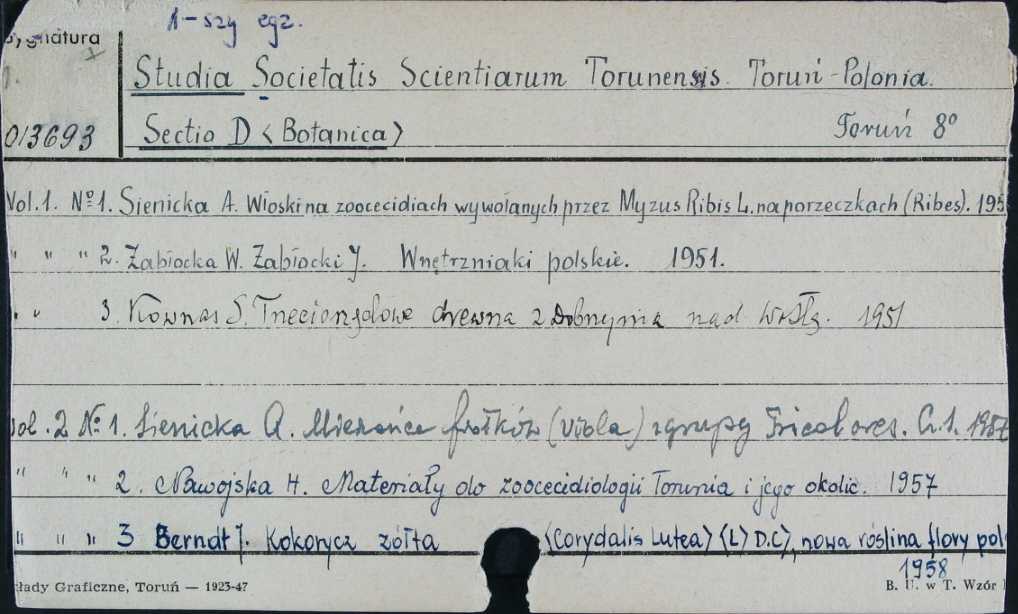 1-szy egz.
Sygnatura
Studia Societatis Scientiarum Torunensis. Toruń-Polonia.
013693
Sectio D <Botanica> Toruń 8°
Vol.1. Nº1. Sienicka A. Włoski na zoocecidiach wywołanych przez Myzus Ribis L. na porzeczkach (Ribes). 195
" " " 2. Zabłocka W. Zabłocki J. Wnętrzniaki polskie. 1951.
" " 3. Kownas S. Trzeciorzędowe drewna z Dobrzynia nad Wisłą. 1951
Vol. 2 Nº 1. Sienicka A. Mieszańce fiołków (Viola) z grupy Tricolores. Cz.1. 1957
" " " 2. Nawojska H. Materiały do zoocecidiologii Torunia i jego okolic. 1957
" " " 3 Berndt J. Kokorycz żółta <Corydalis Lutea> <L> D.C>, nowa roślina flory pol
1958
kłady Graficzne, Toruń — 1923-47 B. U. w T. Wzór